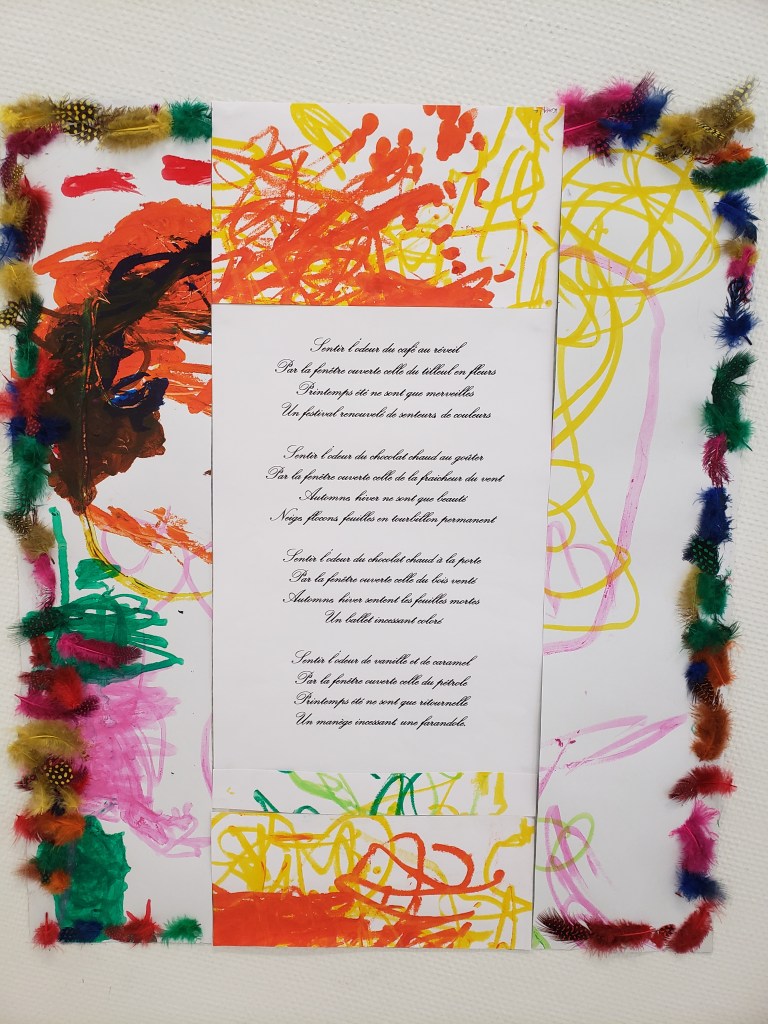 Sentir l'odeur du café au réveil
Par la fenêtre ouverte celle du tilleul en fleurs
Printemps été ne sont que merveilles
Un festival renouvelé de senteurs de couleurs
Sentir l'odeur du chocolat chaud au goûter
Par la fenêtre ouverte celle de la fraicheur du vent
Automne, hiver ne sont que beauté
Neige, flocons, feuilles en tourbillon permanent
Sentir l'odeur du chocolat chaud à la porte
Par la fenêtre ouverte celle du bois venté
Automne, hiver sentent les feuilles mortes
Un ballet incessant coloré
Sentir l'odeur de vanille et de caramel
Par la fenêtre ouverte celle du pétrole
Printemps été ne sont que ritournelle
Un manège incessant, une farandole.